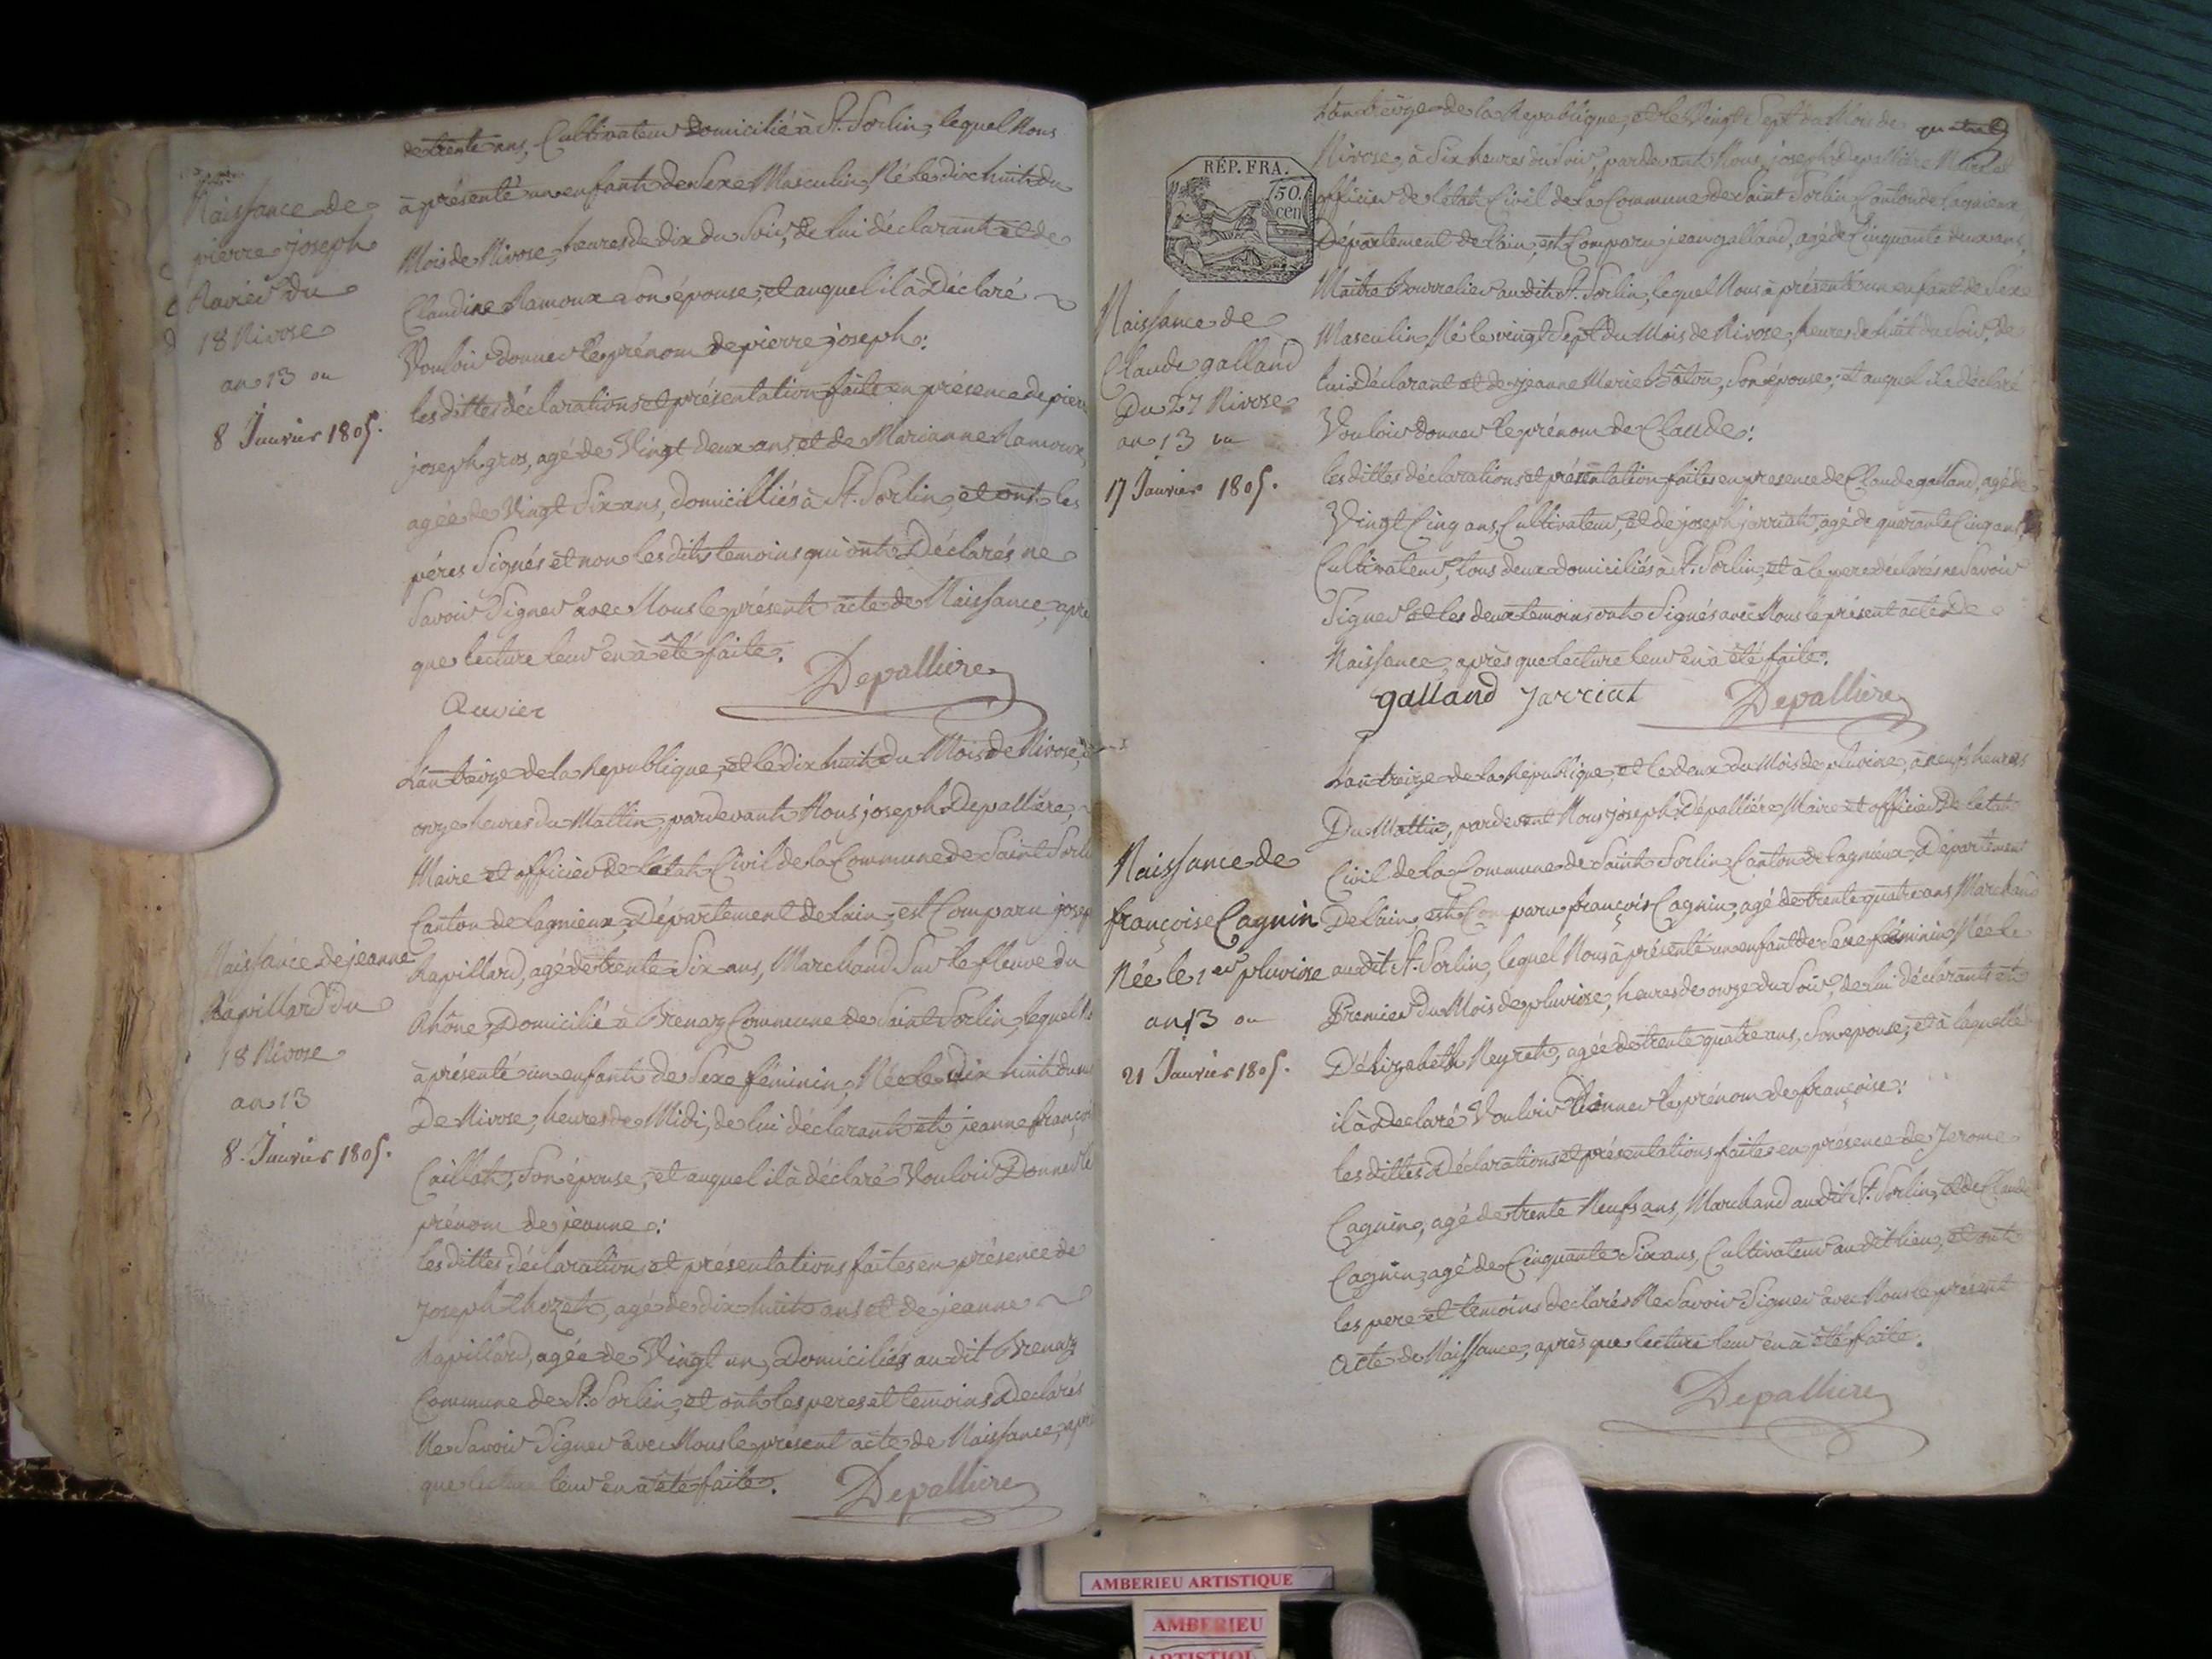 de trente ans, Cultivateur Domicilié à St. Sorlin, lequel Nous
à présenté un enfant de Sexe Masculin, Né le dix huit du
Mois de Nivose, heures de dix du Soir, de lui déclarant et de
Claudine Ramoux Son épouse, et auquel il à Déclaré
Vouloir donner le prénom de pierre joseph:
les dittes déclarations et présentation faite en présence de pierre
joseph gros, agé de Vingt deux ans, et de Marianne Ramoux,
agée de Vingt Six ans, domicilliés à St. Sorlin, et ont les
péres Signés et non les dits temoins qui ont Déclarés ne
Savoir Signer avec Nous le présent acte de Naissance, apre
que lecture leur en à été faite.
Depalliere
Ravier
Naissance de
pierre joseph
Ravier du
18 Nivose
an 13 ou
8 Janvier 1805.
L'an treize de la Republique, et le dix huit du Mois de Nivose,
onze heures du Mattin, pardevant Nous joseph Depalliére,
Maire et officier de l'état Civil de la Commune de Saint Sorli
Canton de Lagnieux, Département de l'ain, est Comparu josep
Rapillard, agé de trente Six ans, Marchand Sur le fleuve du
Rhône, Domicilié à Brenaz Commune de Saint Sorlin, lequel
à présenté un enfant de Sexe féminin, Née le dix huit du
De Nivose, heures de Midi, de lui déclarant et jeanne françoi
Caillat, Son épouse, et auquel il à déclaré Vouloir Donner le
prénom de jeanne:
les dittes déclarations et présentations faites en présence de
Joseph thozet, agé de dix huit ans et de jeanne
Rapillard, agée de Vingt un, Domiciliés au dit Brenaz
Commune de St. Sorlin, et ont les peres et temoins Declarés
Ne Savoir Signer avec Nous le présent acte de Naissance, apré
que lecture leur en à été faite.
Depalliere
Naissance de jeanne
Rapillard du
18 Nivose
an 13
8. Janvier 1805.
quatre
RÉP. FRA.
50.
cen
L'an treize de la Republique, et le Vingt Sept du Mois de
Nivose, à Six heures du Soir, pardevant Nous joseph Depalliére Maire et
officier de l'état Civil de la Commune de Saint Sorlin Canton de Lagnieux
Département de l'ain, est Comparu jean galland, agé de Cinquante deux ans,
Maitre Bourrelier au dit St. Sorlin, lequel Nous à présenté un enfant de Sexe
Masculin, Né le vingt Sept du Mois de Nivose, heures de huit du Soir, de
lui Déclarant et de jeanne Marie Bâton, Son épouse, et auquel il a déclaré
Vouloir donner le prénom de Claude:
les dittes déclarations et présentation faites en presence de Claude galland, agé de
Vingt Cinq ans, Cultivateur, et de joseph jarriat, agé de quarante Cinq ans,
Cultivateur, tous deux domiciliés à St. Sorlin, et à le pere déclarés ne Savoir
Signer et les deux temoins ont Signés avec Nous le présent acte de
Naissance, après que lecture leur en à été faite.
galland Jarriat Depalliere
Naissance de
Claude galland
Du 27 Nivose
an 13 ou
17 Janvier 1805.
L'an treize de la République, et le deux du Mois de pluviose, à neufs heures
Du Mattin, pardevant Nous joseph Dépalliére Maire et officier De l'etat
Civil de la Commune de Saint Sorlin, Canton de Lagnieux, Département
De l'ain, est Comparu françois Cagnin, agé de trente quatre ans, Marchand
au dit St. Sorlin, lequel Nous à présenté un enfant de Sexe féminin Née le
Premier du Mois de pluviose, heures de onze du Soir, de lui déclarant et
D'élizabeth Neyret, agée de trente quatre ans, Son epouse, et à laquelle
il à Declaré Vouloir Donner le prénom de françoise:
les dittes Déclarations et présentations faites en présence de Jerome
Cagnin, agé de trente Neufs ans, Marchand au dit St. Sorlin, et de Claude
Cagnin, agé de Cinquante Six ans, Cultivateur au dit lieu, et ont
les pere et temoins declarés Ne Savoir Signer avec Nous le present
Acte de Naissance, après que lecture leur en à été faite.
Depalliere
Naissance de
françoise Cagnin
Née le 1er pluviose
an 13 ou
21 Janvier 1805.
AMBERIEU ARTISTIQUE
AMBERIEU